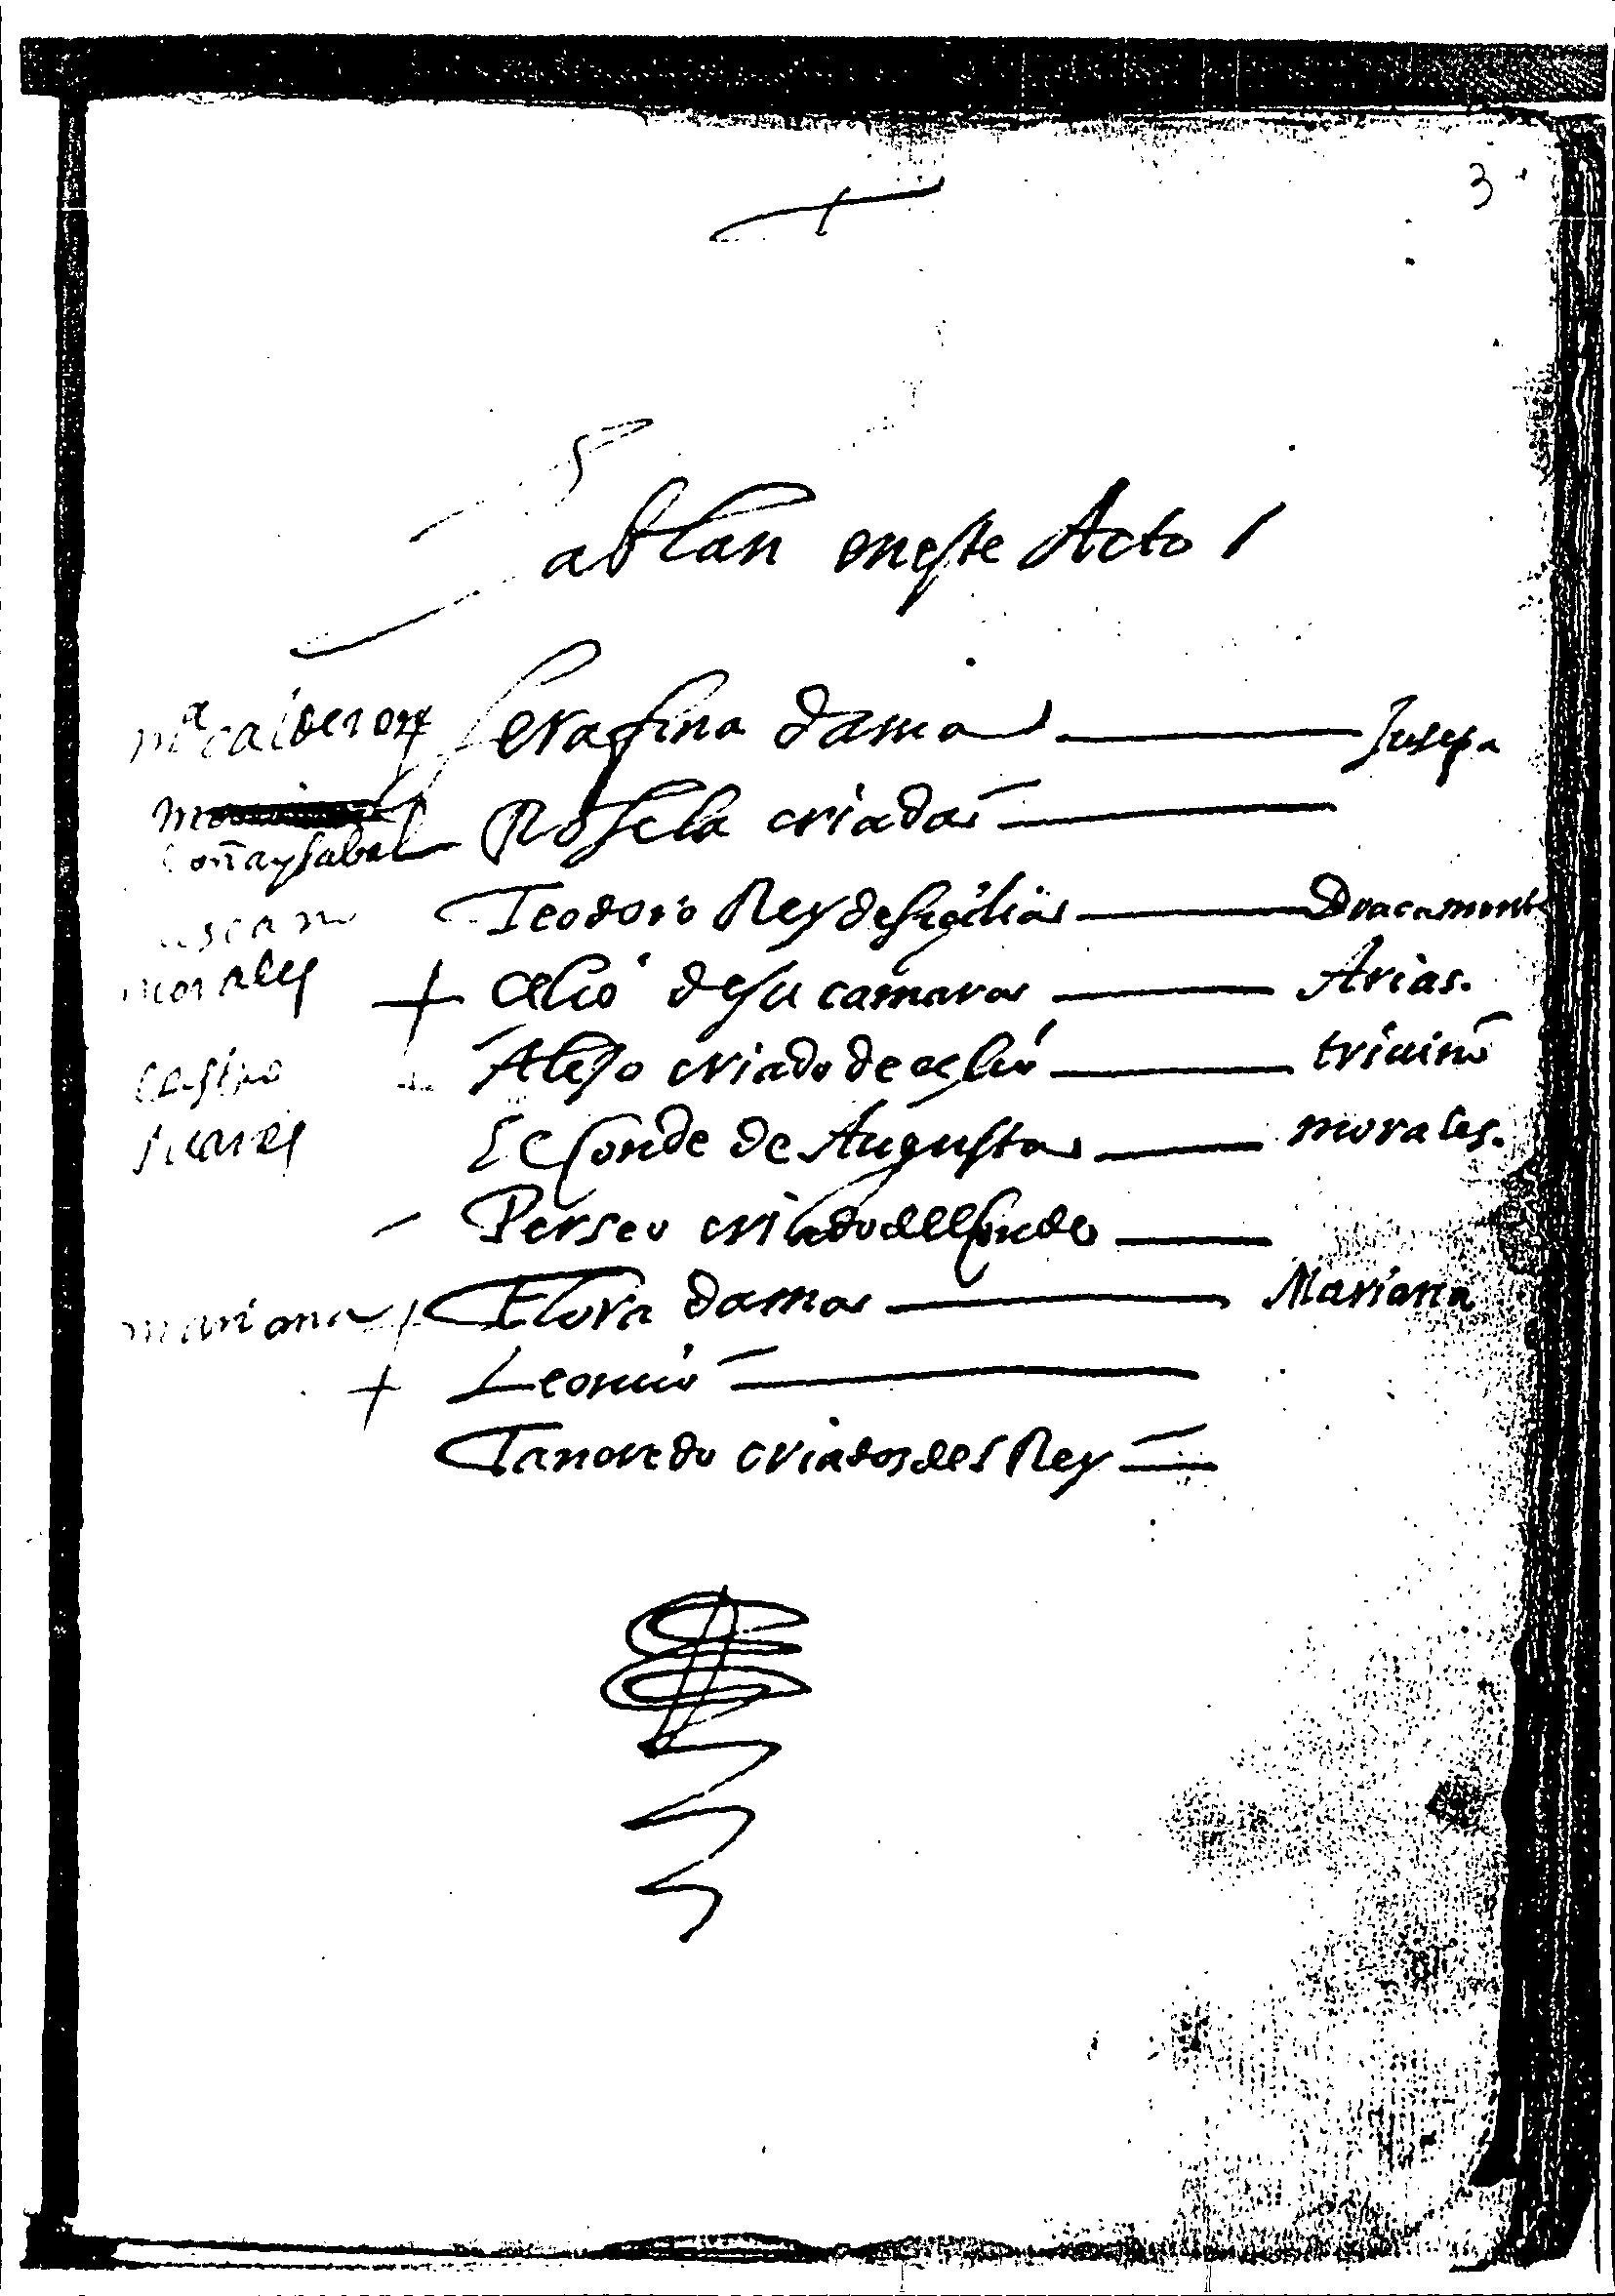 3
ablan eneste Acto 1
mª calderon Serafina dama Jusepa
doña ysabel Rosela criada
Teodoro Rey de sicilia Bracamonte
morales Celio de su camara Arias.
Alejo criado de celio triuiño
El Conde de Augusta morales.
Perseo criado del Conde
mariana Flora dama Mariana
Leonicio
Tancredo criados del Rey